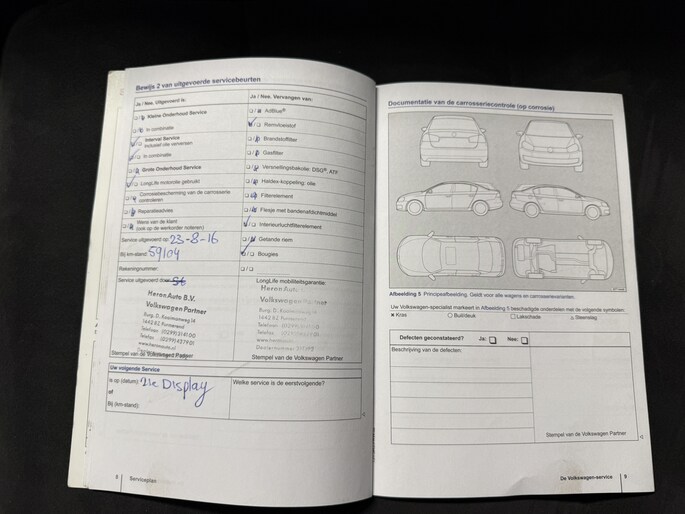 Bewijs 2 van uitgevoerde servicebeurten
Ja / Nee. Uitgevoerd is:
Kleine Onderhoud Service
In combinatie
Interval Service
inclusief olie verversen
In combinatie
Grote Onderhoud Service
LongLife motorolie gebruikt
Corrosiebescherming van de carrosserie
controleren
Reparatieadvies
Wens van de klant
(ook op de werkorder noteren)
Service uitgevoerd op: 23-8-16
Bij km-stand: 59104
Rekeningnummer:
Service uitgevoerd door:
Heron Auto B.V.
Volkswagen Partner
1442 RZ Purmerend
Stempel van de Volkswagen Partner
Ja / Nee. Vervangen van:
AdBlue®
Remvloeistof
Brandstoffilter
Gasfilter
Versnellingsbakolie: DSG®, ATF
Haldex-koppeling: olie
Filterelement
Flesje met bandenafdichtmiddel
Interieurluchtfilterelement
Getande riem
Bougies
LongLife mobiliteitsgarantie:
Heron Auto
Volkswagen Partner
Stempel van de Volkswagen Partner
Uw volgende Service
Is op (datum): zie Display
of
Bij (km-stand):
Welke service is de eerstvolgende?
8 Serviceplan
Documentatie van de carrosseriecontrole (op corrosie)
Afbeelding 5 Principeafbeelding. Geldt voor alle wagens en carrosserievarianten.
Uw Volkswagen-specialist markeert in Afbeelding 5 beschadigde onderdelen met de volgende symbolen:
× Kras ○ Buil/deuk □ Lakschade △ Steenslag
Defecten geconstateerd? Ja: Nee:
Beschrijving van de defecten:
Stempel van de Volkswagen Partner
De Volkswagen-service 9